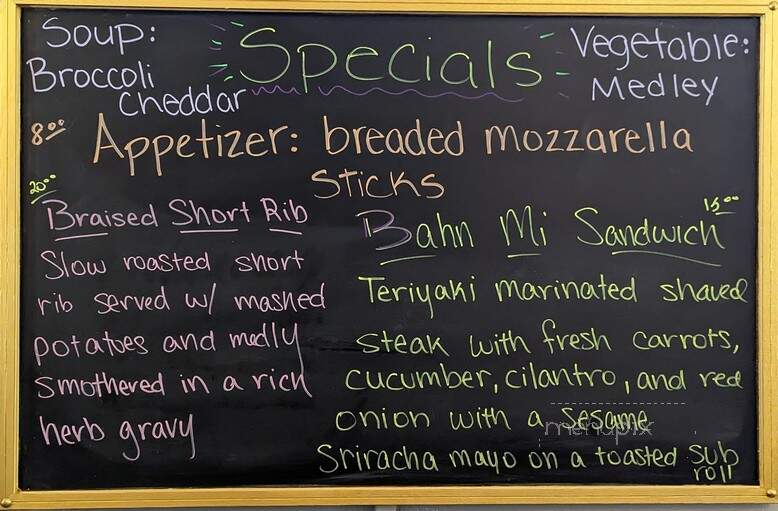 Specials
Soup:
Broccoli
Cheddar
Vegetable:
Medley
8.00
Appetizer: breaded mozzarella
sticks
20.00
Braised Short Rib
Slow roasted short
rib served w/ mashed
potatoes and medly
smothered in a rich
herb gravy
15.00
Bahn Mi Sandwich
Teriyaki marinated shaved
steak with fresh carrots,
cucumber, cilantro, and red
onion with a sesame
Sriracha mayo on a toasted sub
roll
menupix